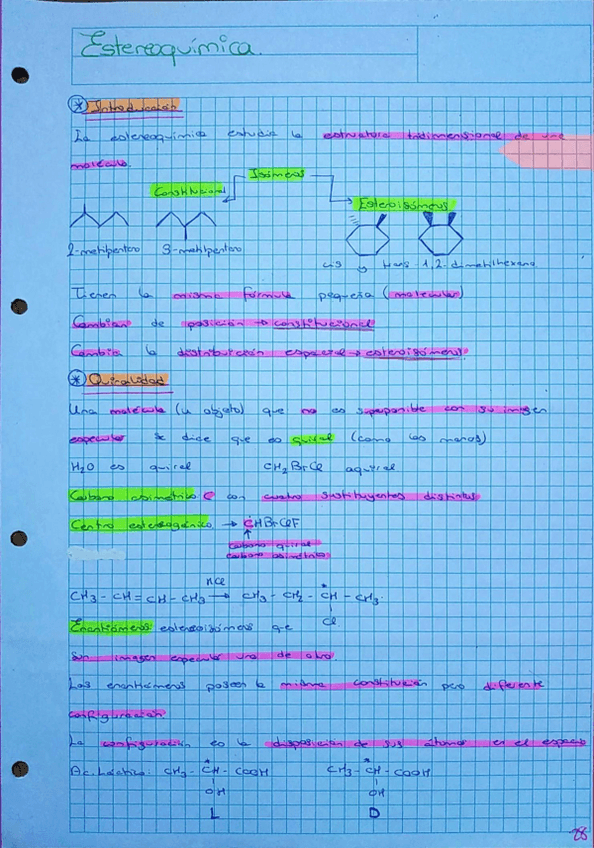 Estereoquímica.
* Introducción
La estereoquímica estudia la estructura tridimensional de una
molécula.
Isómeros
Constitucional
Estereoisómeros
2-metilpentano 3-metilpentano
cis y trans-1,2-dimetilhexano
Tienen la misma fórmula pequeña (molecular)
Cambian de posición → constitucional
Cambia la distribución espacial → estereoisómeros.
* Quiralidad
Una molécula (u objeto) que no es superponible con su imagen
especular se dice que es quiral (como las manos)
H2O es quiral CH2BrCl aquiral
Carbono asimétrico: C con cuatro sustituyentes distintos
Centro estereogénico. → CHBrClF
carbono quiral
carbono asimétrico
HCl
CH3 - CH = CH - CH3 → CH3 - CH2 - *CH - CH3.
Cl
Enantiómeros: estereoisómeros que
son imagen especular uno de otro.
Los enantiómeros poseen la misma constitución pero diferente
configuración.
La configuración es la disposición de sus átomos en el espacio
Ac. Láctico: CH3 - *CH - COOH CH3 - *CH - COOH
OH OH
L D
28